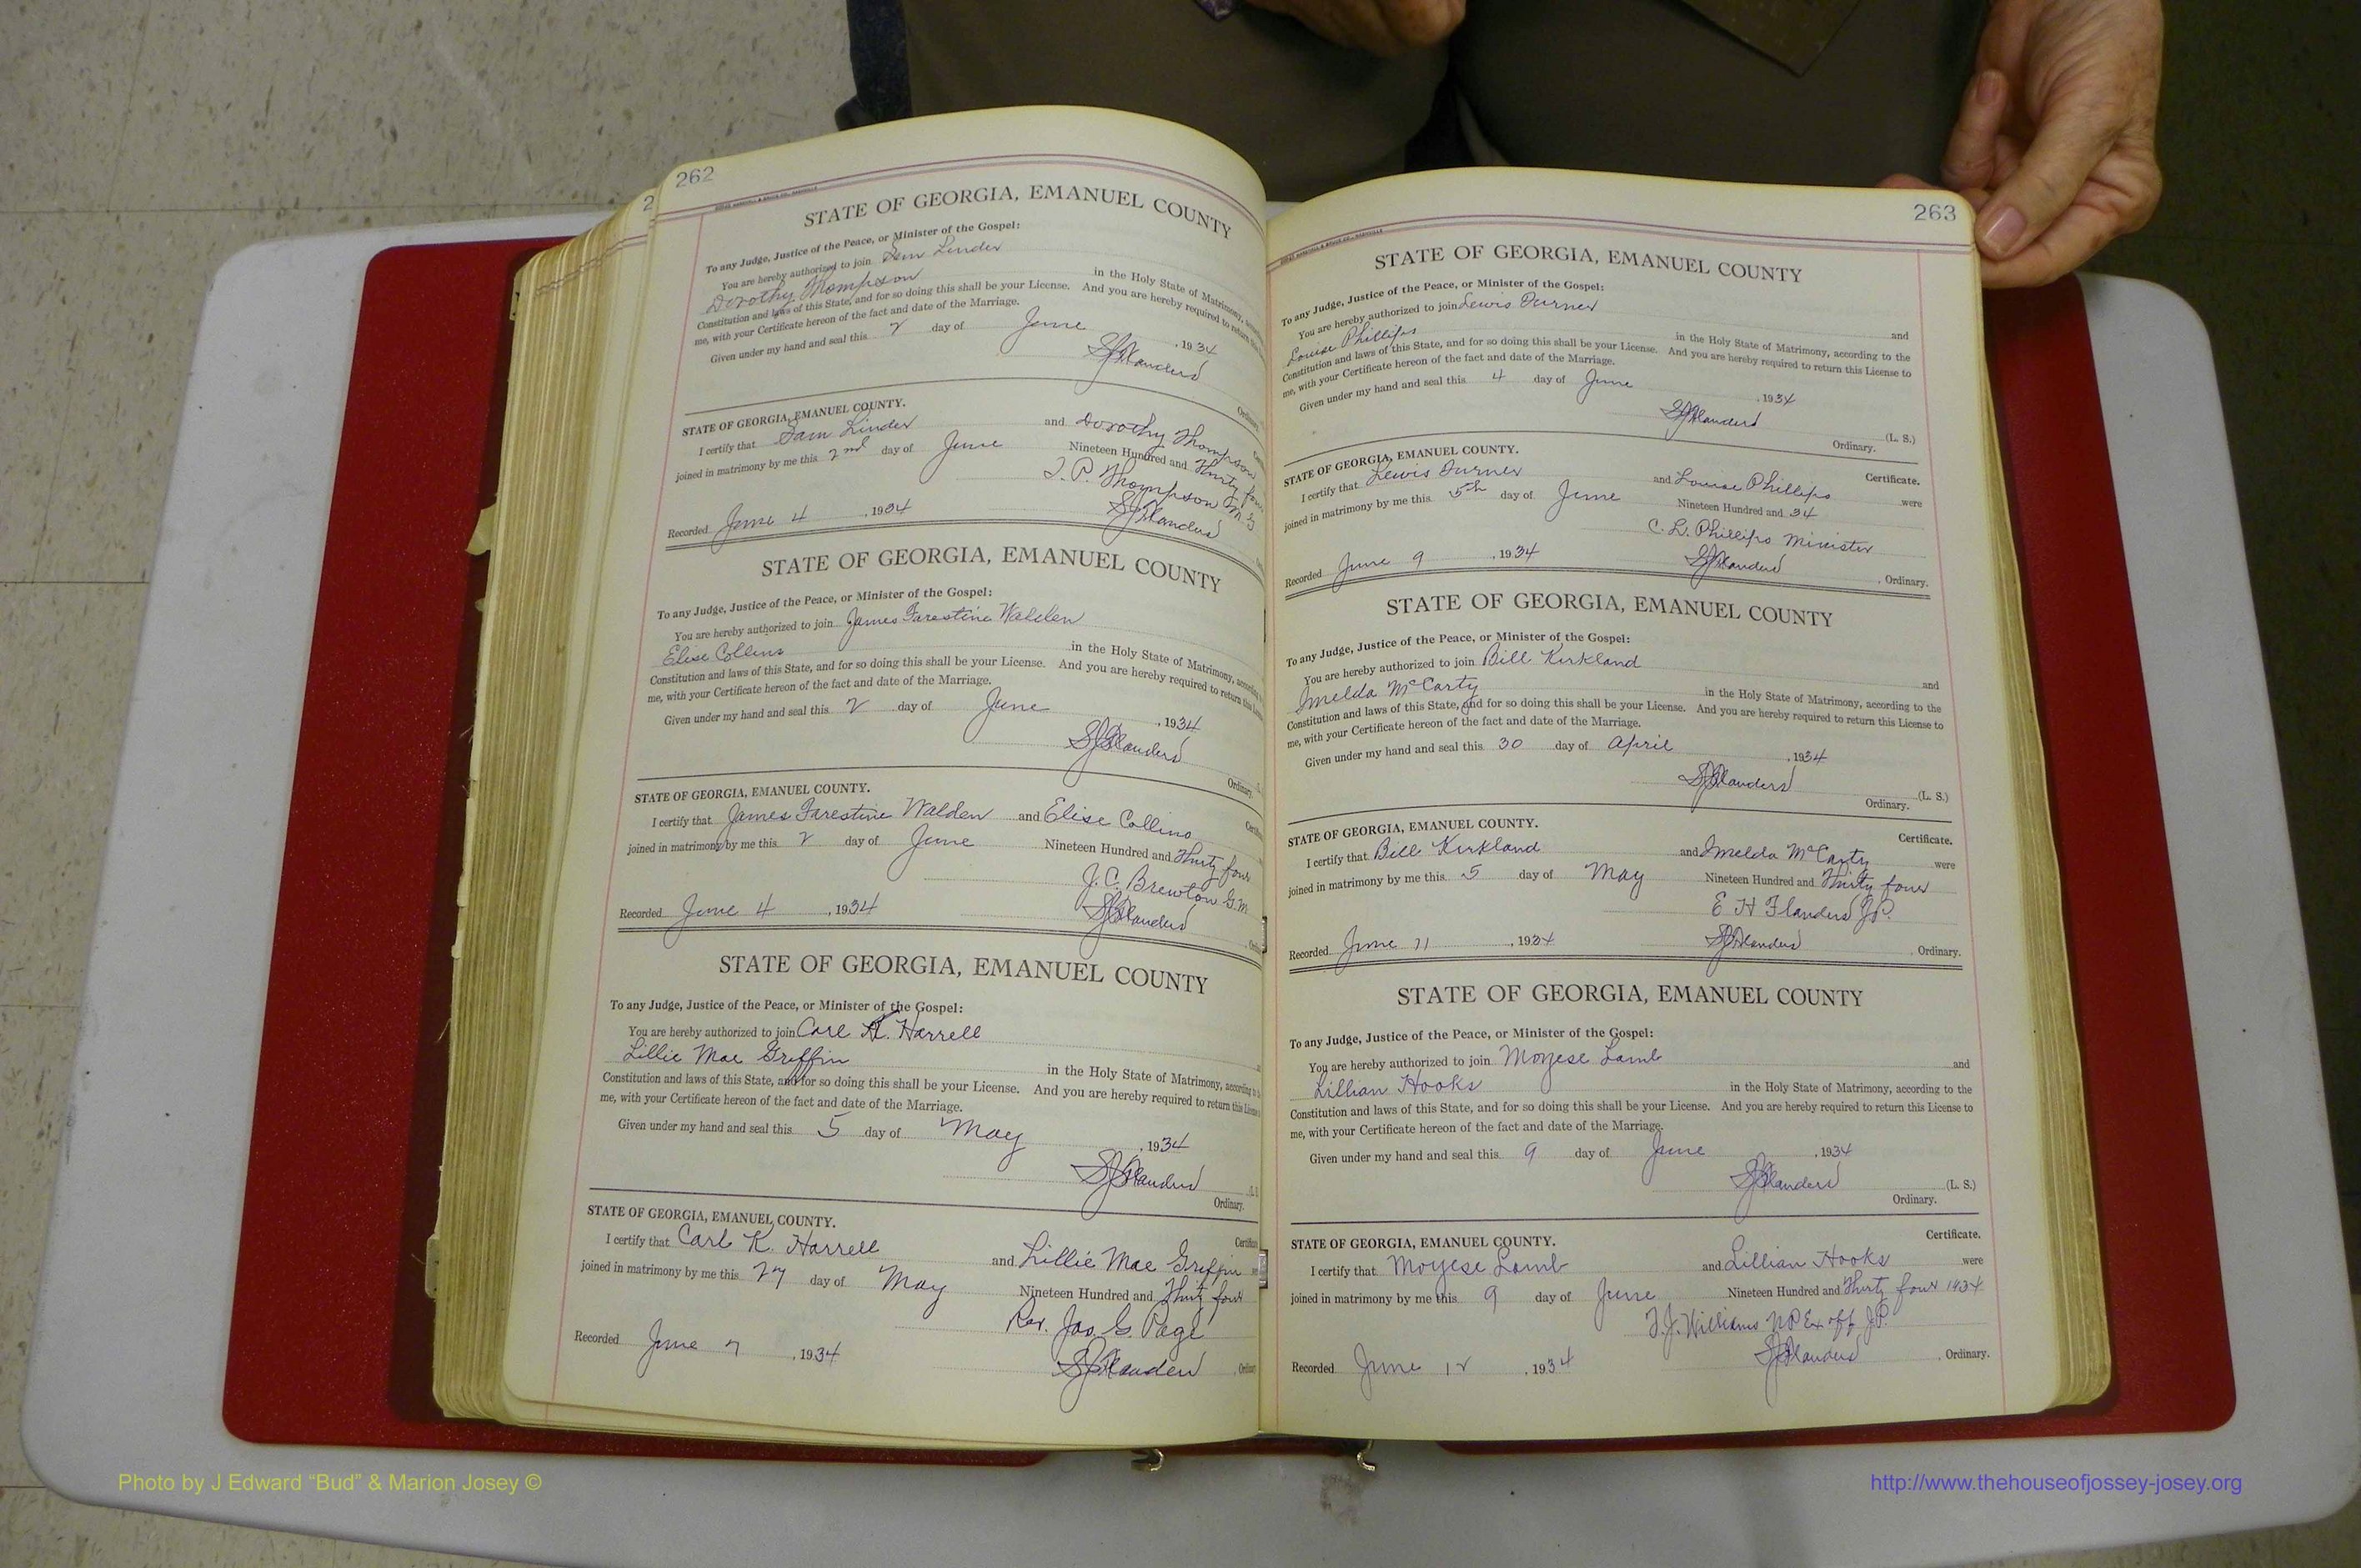 262
STATE OF GEORGIA, EMANUEL COUNTY
To any Judge, Justice of the Peace, or Minister of the Gospel:
You are hereby authorized to join Sam Linder
Dorothy Thompson in the Holy State of Matrimony,
Constitution and laws of this State, and for so doing this shall be your License. And you are hereby required to return
me, with your Certificate hereon of the fact and date of the Marriage.
Given under my hand and seal this 2 day of June, 1934
SJFlanders
Ordinary.
STATE OF GEORGIA, EMANUEL COUNTY.
I certify that Sam Linder and Dorothy Thompson
joined in matrimony by me this 2nd day of June Nineteen Hundred and Thirty four
Thompson M. G
Recorded June 4, 1934 Flanders
STATE OF GEORGIA, EMANUEL COUNTY
To any Judge, Justice of the Peace, or Minister of the Gospel:
You are hereby authorized to join James Farestine Walden
Elise Collins in the Holy State of Matrimony,
Constitution and laws of this State, and for so doing this shall be your License. And you are hereby required to return this
me, with your Certificate hereon of the fact and date of the Marriage.
Given under my hand and seal this 2 day of June, 1934
Flanders
Ordinary.
STATE OF GEORGIA, EMANUEL COUNTY.
I certify that James Farestine Walden and Elise Collins
joined in matrimony by me this 2 day of June Nineteen Hundred and Thirty four
J. C. Brewton G.M.
Recorded June 4, 1934 Flanders
STATE OF GEORGIA, EMANUEL COUNTY
To any Judge, Justice of the Peace, or Minister of the Gospel:
You are hereby authorized to join Carl K. Harrell
Lillie Mae Griffin in the Holy State of Matrimony, according
Constitution and laws of this State, and for so doing this shall be your License. And you are hereby required to return this
me, with your Certificate hereon of the fact and date of the Marriage.
Given under my hand and seal this 5 day of May, 1934
Flanders
Ordinary.
STATE OF GEORGIA, EMANUEL COUNTY.
I certify that Carl K. Harrell and Lillie Mae Griffin
joined in matrimony by me this 27 day of May Nineteen Hundred and Thirty four
Rev. Jas. G. Page
Recorded June 7, 1934 Flanders
263
STATE OF GEORGIA, EMANUEL COUNTY
To any Judge, Justice of the Peace, or Minister of the Gospel:
You are hereby authorized to join Lewis Turner and
Louise Phillips in the Holy State of Matrimony, according to the
Constitution and laws of this State, and for so doing this shall be your License. And you are hereby required to return this License to
me, with your Certificate hereon of the fact and date of the Marriage.
Given under my hand and seal this 4 day of June, 1934
Flanders (L. S.)
Ordinary.
STATE OF GEORGIA, EMANUEL COUNTY. Certificate.
I certify that Lewis Turner and Louise Phillips were
joined in matrimony by me this 5th day of June Nineteen Hundred and 34
C. L. Phillips Minister
Recorded June 9, 1934 Flanders, Ordinary.
STATE OF GEORGIA, EMANUEL COUNTY
To any Judge, Justice of the Peace, or Minister of the Gospel:
You are hereby authorized to join Bill Kirkland and
Imelda McCarty in the Holy State of Matrimony, according to the
Constitution and laws of this State, and for so doing this shall be your License. And you are hereby required to return this License to
me, with your Certificate hereon of the fact and date of the Marriage.
Given under my hand and seal this 30 day of April, 1934
Flanders (L. S.)
Ordinary.
STATE OF GEORGIA, EMANUEL COUNTY. Certificate.
I certify that Bill Kirkland and Imelda McCarty were
joined in matrimony by me this 5 day of May Nineteen Hundred and Thirty four
E H Flanders J.P.
Recorded June 11, 1934 Flanders, Ordinary.
STATE OF GEORGIA, EMANUEL COUNTY
To any Judge, Justice of the Peace, or Minister of the Gospel:
You are hereby authorized to join Moyese Lamb and
Lillian Hooks in the Holy State of Matrimony, according to the
Constitution and laws of this State, and for so doing this shall be your License. And you are hereby required to return this License to
me, with your Certificate hereon of the fact and date of the Marriage.
Given under my hand and seal this 9 day of June, 1934
Flanders (L. S.)
Ordinary.
STATE OF GEORGIA, EMANUEL COUNTY. Certificate.
I certify that Moyese Lamb and Lillian Hooks were
joined in matrimony by me this 9 day of June Nineteen Hundred and Thirty four 1934
Williams NP Ex off J.P.
Recorded June 12, 1934 Flanders, Ordinary.
Photo by J Edward “Bud” & Marion Josey ©
http://www.thehouseofjossey-josey.org